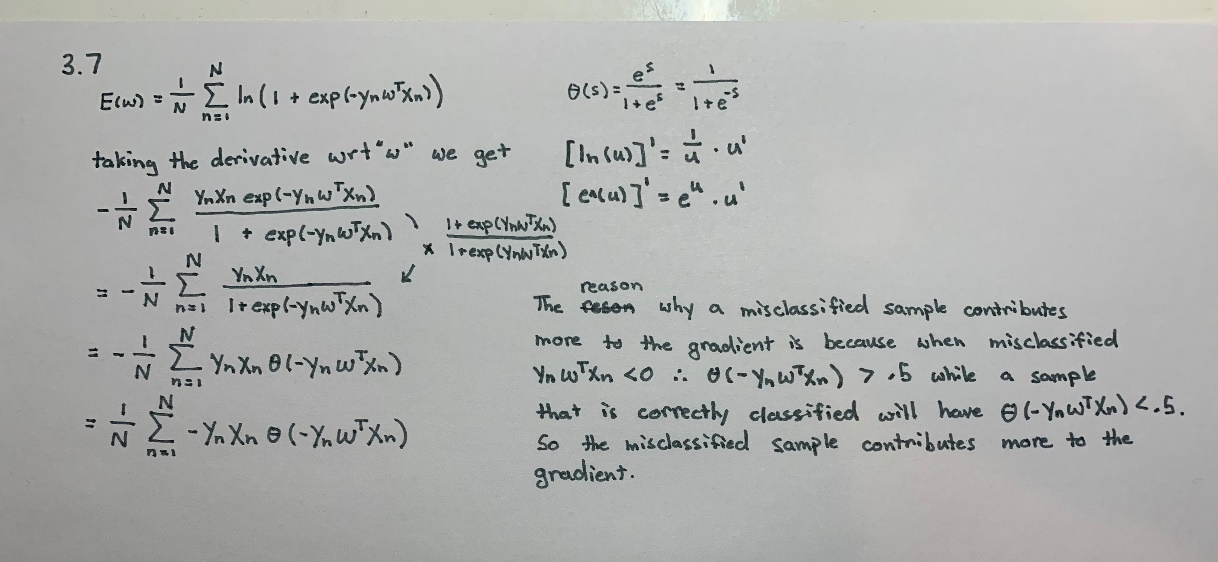 3.7
E(w) = 1/N Σ_{n=1}^{N} ln(1 + exp(-ynwᵀxn))
θ(s) = e^s/(1+e^s) = 1/(1+e^{-s})
taking the derivative wrt "w" we get
[ln(u)]' = 1/u · u'
[e^(u)]' = e^u · u'
-1/N Σ_{n=1}^{N} ynxn exp(-ynwᵀxn) / (1 + exp(-ynwᵀxn))
× (1 + exp(ynwᵀxn)) / (1 + exp(ynwᵀxn))
= -1/N Σ_{n=1}^{N} ynxn / (1 + exp(-ynwᵀxn))
= -1/N Σ_{n=1}^{N} ynxn θ(-ynwᵀxn)
= 1/N Σ_{n=1}^{N} -ynxn θ(-ynwᵀxn)
The reason why a misclassified sample contributes
more to the gradient is because when misclassified
ynwᵀxn <0 ∴ θ(-ynwᵀxn) > .5 while a sample
that is correctly classified will have θ(-ynwᵀxn) < .5.
So the misclassified sample contributes more to the
gradient.